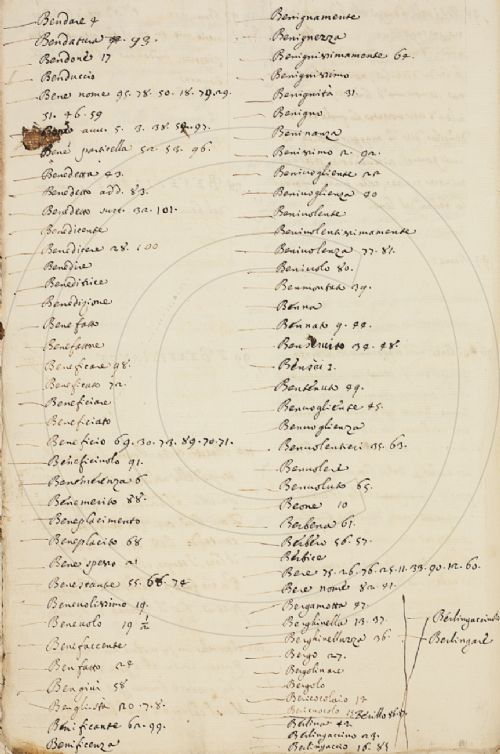 Bendare 4
Bendatura 93.
Bendone 17
Benduccio
Bene nome 95. 78. 50. 18. 79. 29.
51. 46. 59
Bene avv. 5. 3. 38. 97.
Bene particella 52. 53. 96.
Benedetta 43.
Benedetto add. 83.
Benedetto sust. 32. 101.
Benedicente
Benedicere 28. 100
Benedire
Beneditrice
Benedizione
Benefatto
Benefattore
Beneficare 98.
Beneficato 72.
Beneficiare
Beneficiato
Beneficio 69. 30. 73. 89. 70. 71.
Beneficiuolo 91.
Benemerito 88.
Beneplacimento
Beneplacito 68
Bene spesso 21
Benestante 55. 66. 74
Benevolissimo 19.
Benevolo 19
Benfaccente
Benfatto 24
Bengiui 58
Benificante 62. 99.
Benificenza
Benignamente
Benignezza
Benignissimamente 64.
Benignissimo
Benignità 31.
Benigno
Beninanza
Benissimo 2. 92.
Benivogliente 22
Benivoglienza 40
Benivolente
Benivolentissimamente
Benivolenza 77. 81.
Benivolo 80.
Benmontata 39.
Benna
Bennato 9. 44.
Benservito 34. 48.
Bensai 1.
Bentenuto 49.
Benvogliente 45.
Benvoglienza
Benvolentieri 35. 63.
Benvolere
Benvoluto 65.
Beone 10
Berbena 61.
Berbero 56. 57.
Berbice
Bere 75. 26. 76. 25. 11. 33. 90. 12. 60.
Bere nome 82. 41.
Bergamotta 47.
Berghinella 13. 37.
Berghinelluzza 36.
Bergo 27.
Bergolinare
Bergolo
Bericocolaio 14
Bericuocolo
Berlina 42.
Berlingaccino 23.
Berlingaccio 16. 85
Berlingacciuolo
Berlingare